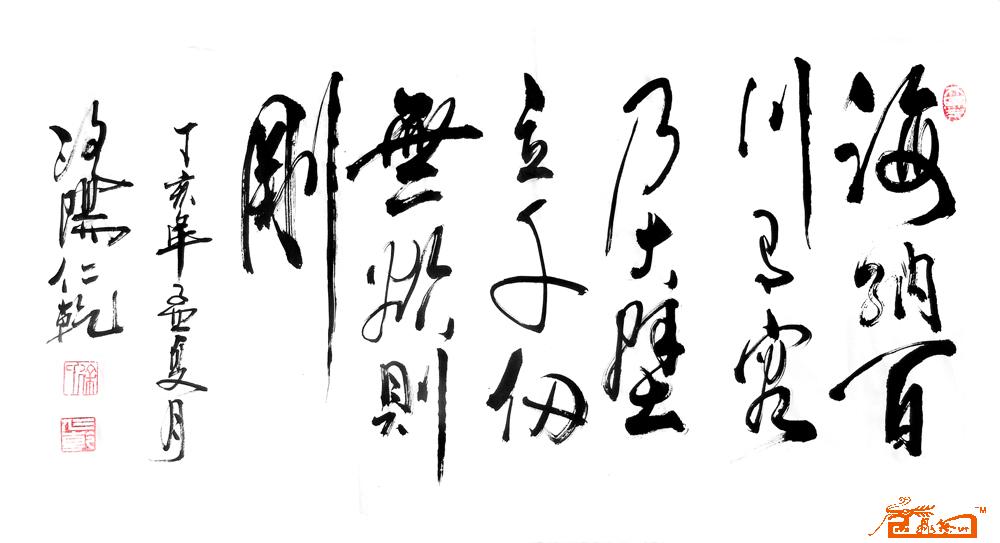 海納百
川有容
乃大壁
立千仞
無欲則
剛
丁亥年孟夏月
洛陽仁乾